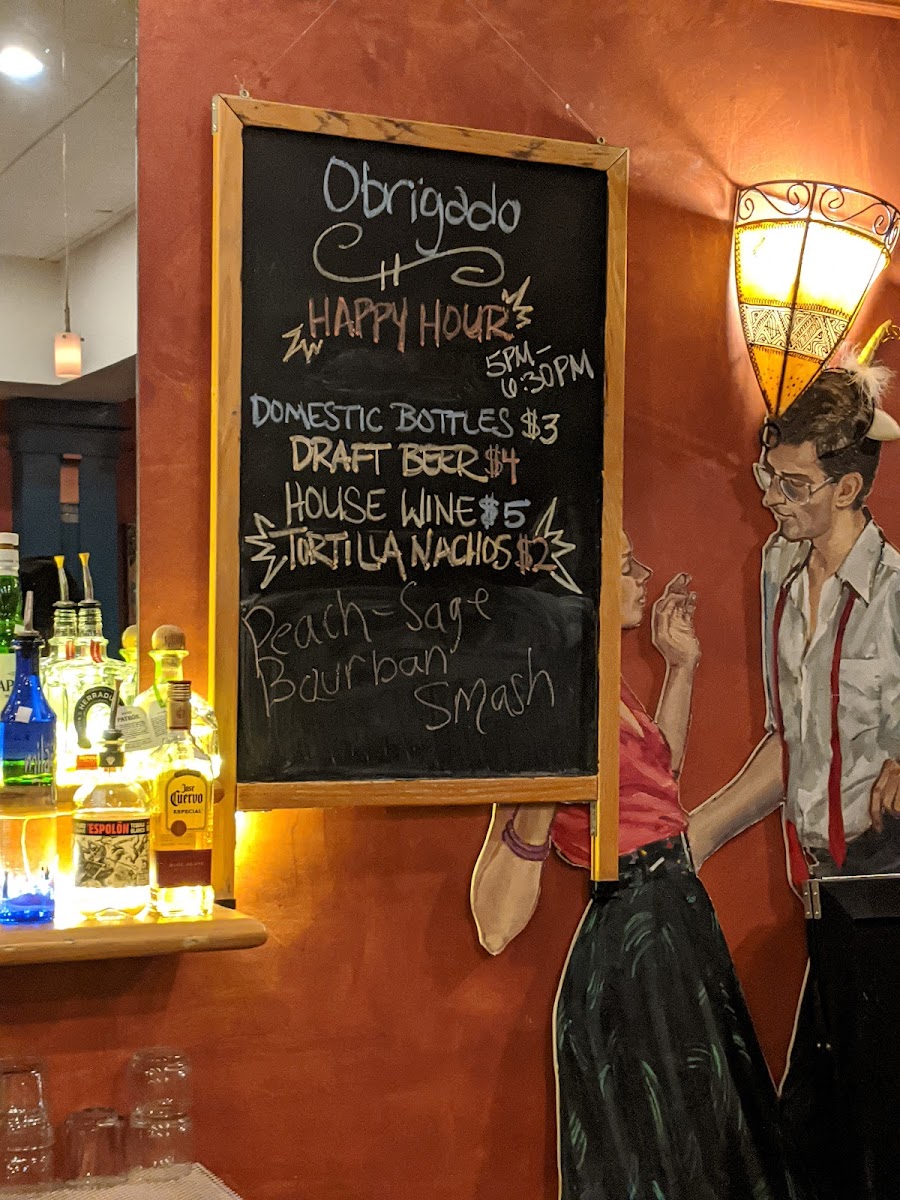 Obrigado
HAPPY HOUR
5PM-
6:30PM
DOMESTIC BOTTLES $3
DRAFT BEER $4
HOUSE WINE $5
TORTILLA NACHOS $2
Peach-Sage
Bourban
Smash
HERRADURA
PATRÓN
Jose
Cuervo
ESPECIAL
ESPOLÒN